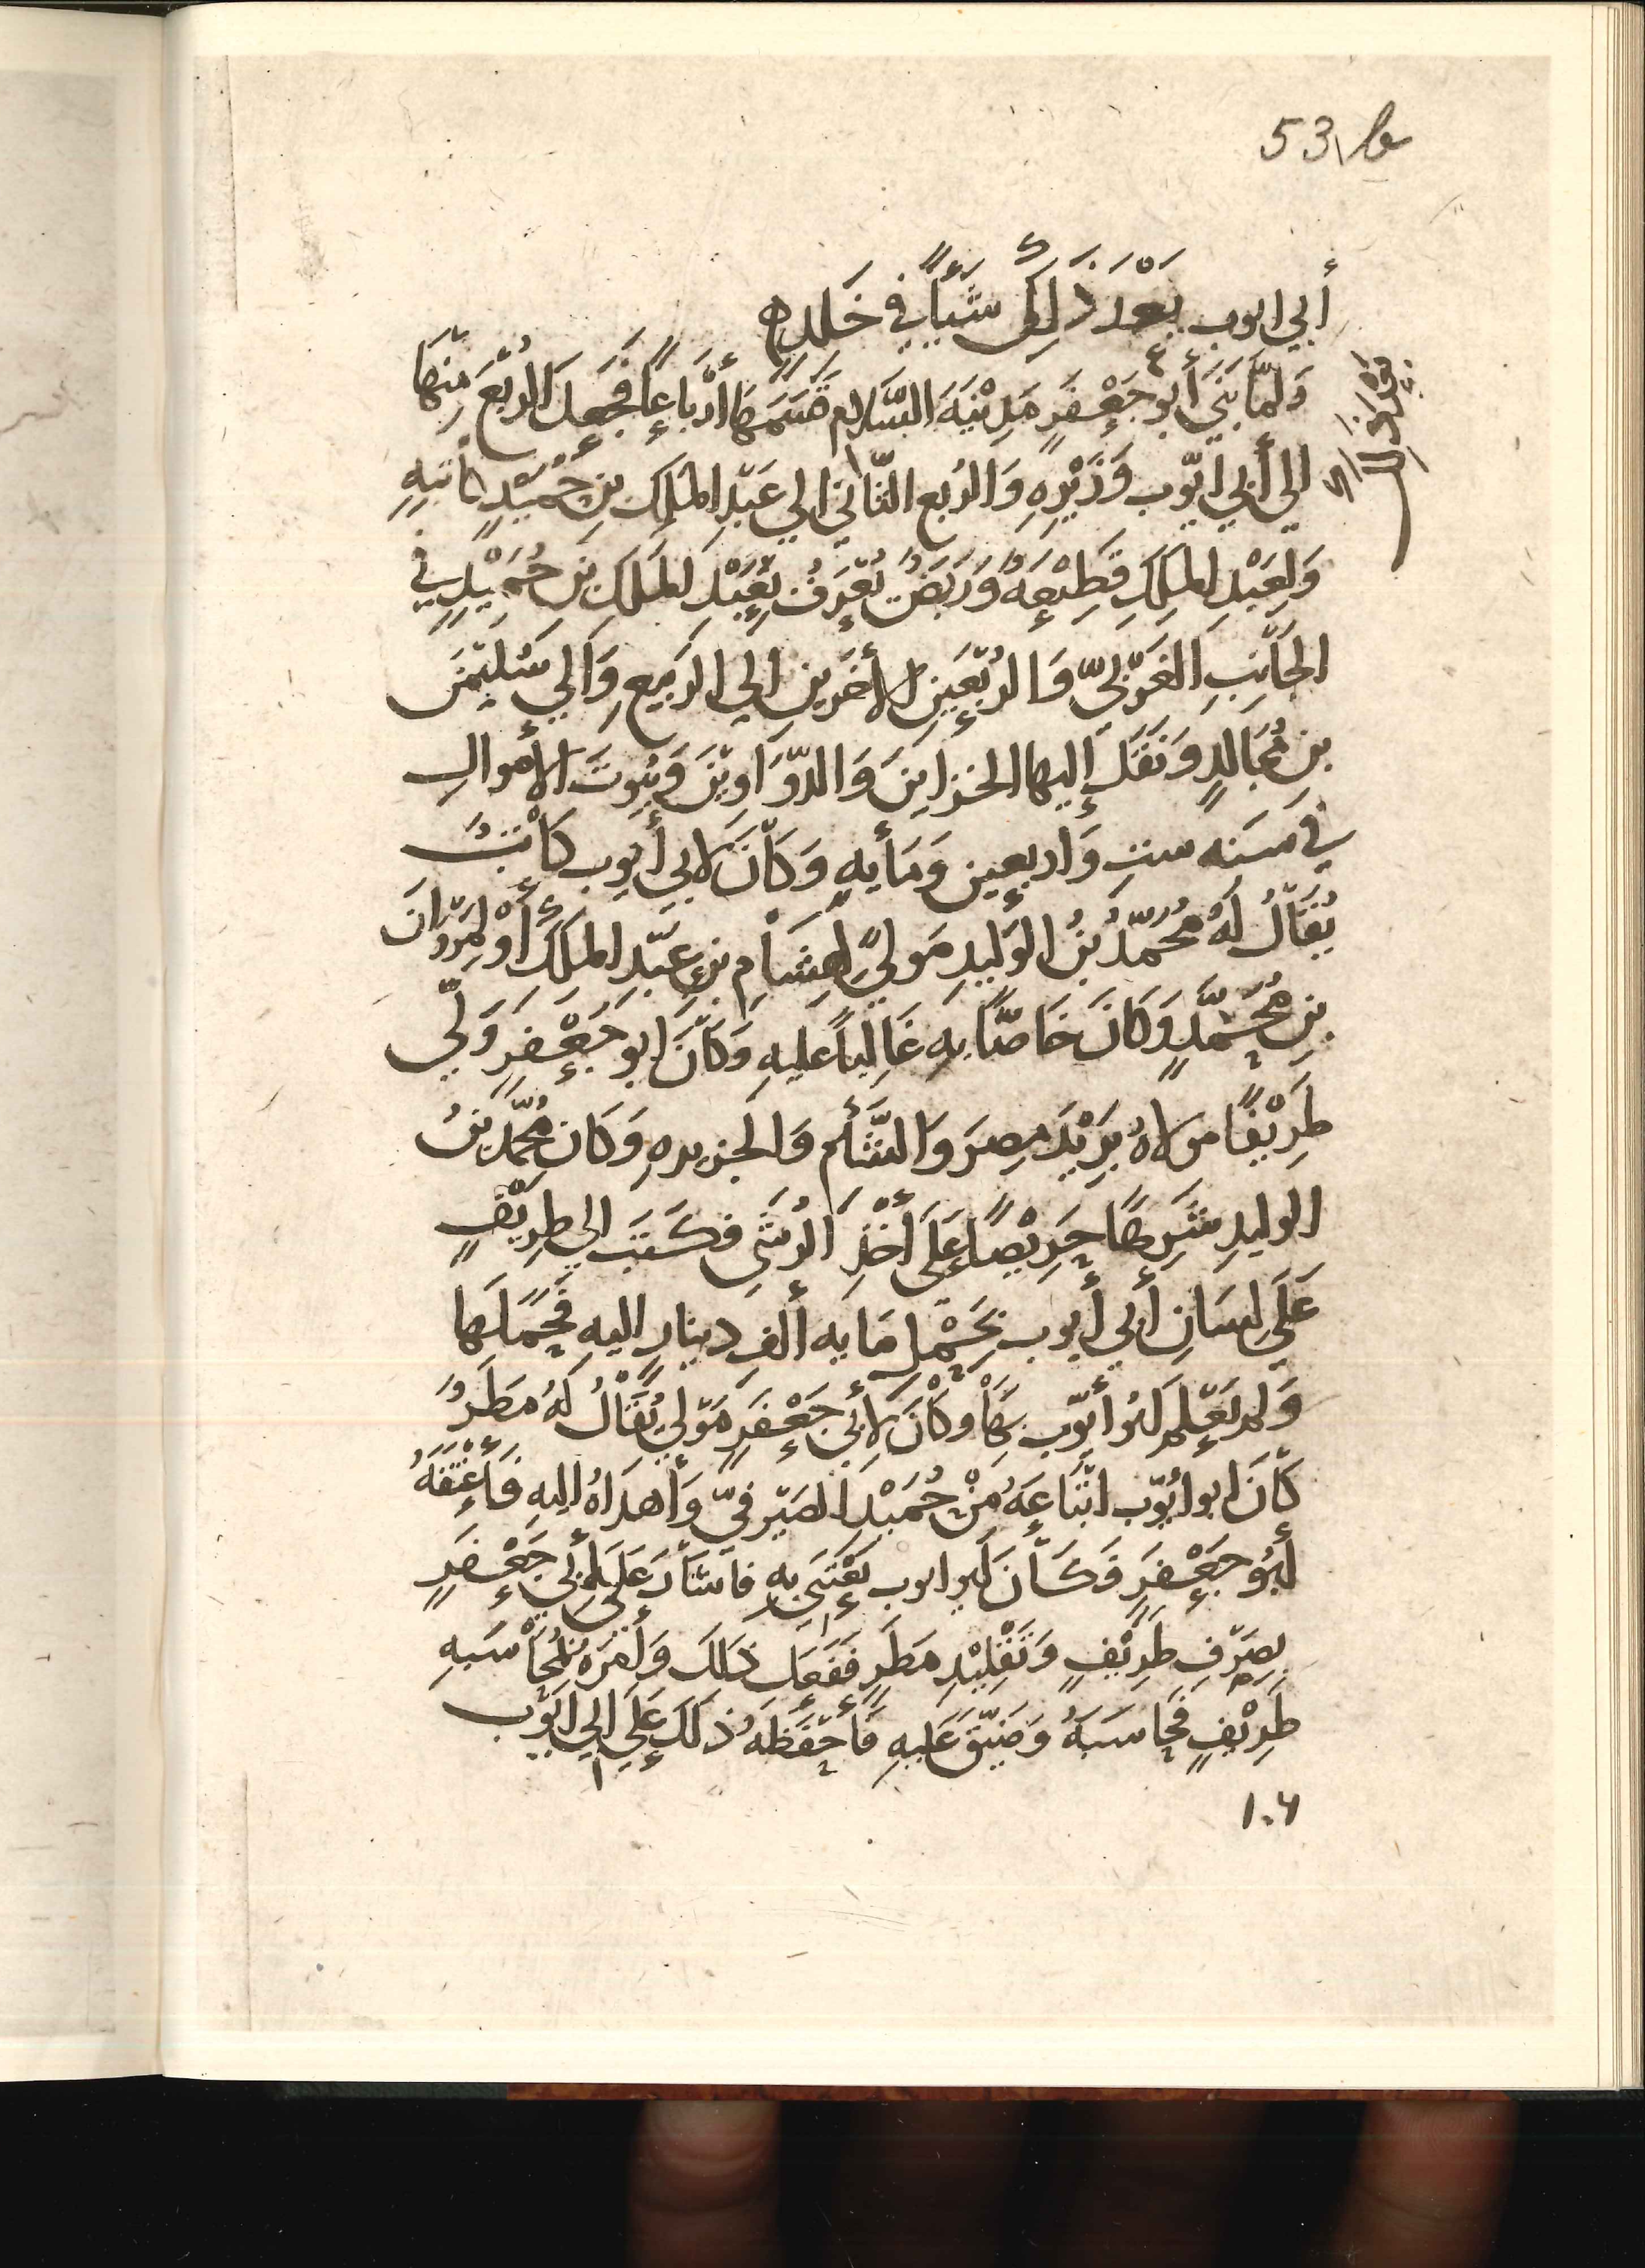 53/a
أبي ايوب بَعْدَ ذَلِكَ شَيْأً في خَلَدِهِ
وَلمَّا بَنَى أبو جَعْفَرٍ مَدِيْنَةَ السَّلام قَسَمَهَا أرْبَاعًا فَجَعَلَ الرُبْعَ مِنْهَا
الي أبي ايّوب وَزِيْرِهِ وَالرُبع الثَّاني الي عَبْدِ المَلِكِ بنِ حُمَيْدٍ كاتبِهِ
وَلِعَبْدِ المَلِكِ قَطِيْعَةٌ وَرَبَضٌ تُعْرَفُ بِعَبْدِ المَلِكِ بنِ حُمَيْدٍ في
الجَانِبِ الغَرْبِيّ وَالرُبْعَينِ الأخَرَينِ الي الرَبيعِ وَالي سُلَيْمَنَ
بنِ مُجَالِدٍ وَنَقَلَ إليها الخزاينَ وَالدَّوَاوِيْنَ وَبُيُوتَ الأموالِ
في سَنَه ستٍ وَاربعين وَمَأيهٍ وَكَانَ لابي أيوب كَاتِبٌ
يُقَالُ لَهُ مُحُمّدُ بنُ الوَليدِ مَوليً لِهِشَامِ بنِ عَبْدِ المَلِكِ أوْ لِمَرْوَانَ
بنِ مُحَمَّدٍ وَكَانَ خَاصّاً بِهِ غَالِباً عليهِ وَكَانَ ابو جَعْفَرٍ وَلّي
طَرِيْفًا مولاهُ بَرِيْدَ مِصرَ وَالشَّأم وَالجزيرهِ وَكان مُحمّدُ بنُ
الوليدِ شَرِهًا حَرِيْصًا عَلَى أخْذِ الرُشَى فكَتبَ الي طَرِيْفٍ
عَلَي لِسَانِ أبي أيوب بِحَمْلِ مَايه ألفِ دينارٍ اليه فَحَمَلَها
وَلم يَعْلم أبُو أيّوب بِهَا وَكَانَ لأبي جَعْفَرٍ مَوْلي يُقَالُ لَهُ مَطَرٌ
كَانَ ابو ايّوب ابْتَاعَهُ مِنْ حُمَيْدٍ الصَيْرفيّ وَأهدَاهُ اليهِ فَأعْتَقَهُ
أبُو جَعْفَرٍ فَكَانَ أبو ايوب يَعْتَنى بِهِ فاشَارَ عَلَى أبي جَعْفَرٍ
بِصَرْفِ طَرِيْفٍ وَتَقْلِيْدِ مَطَرٍ فَفَعَلَ ذلكَ وَأمَرَهُ بمُحَاسَبهِ
طَرِيْفٍ فَحَاسَبَهُ وَضَيّقَ عَلَيهِ فَأحْفَظَهُ ذلكَ عَلَي ابي ايّوب
١٠٦